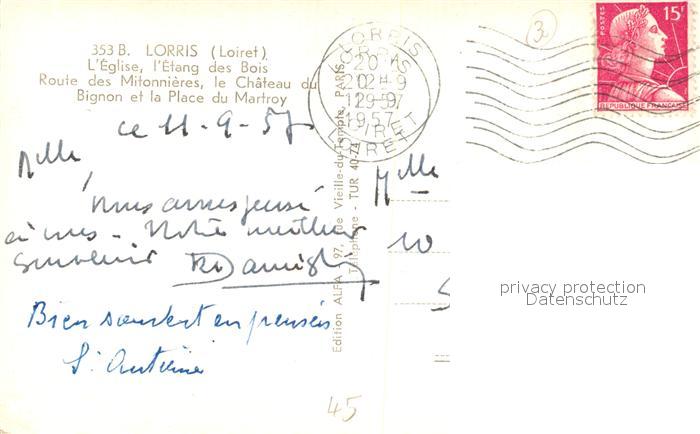 353 B. LORRIS (Loiret)
L'Église, l'Étang des Bois
Route des Mitonnières, le Château du
Bignon et la Place du Martroy
ce 11-9-57
Mlle
Nous avons pensé
à vous - Notre meilleur
souvenir
Bien souvent en pensée
Mlle
10
Edition ALFA, 97, rue Vieille-du-Temple, PARIS
Téléphone - TUR 40-74
LORRIS
1957
LOIRET
POSTES
15F
REPUBLIQUE FRANÇAISE
3
45
privacy protection
Datenschutz